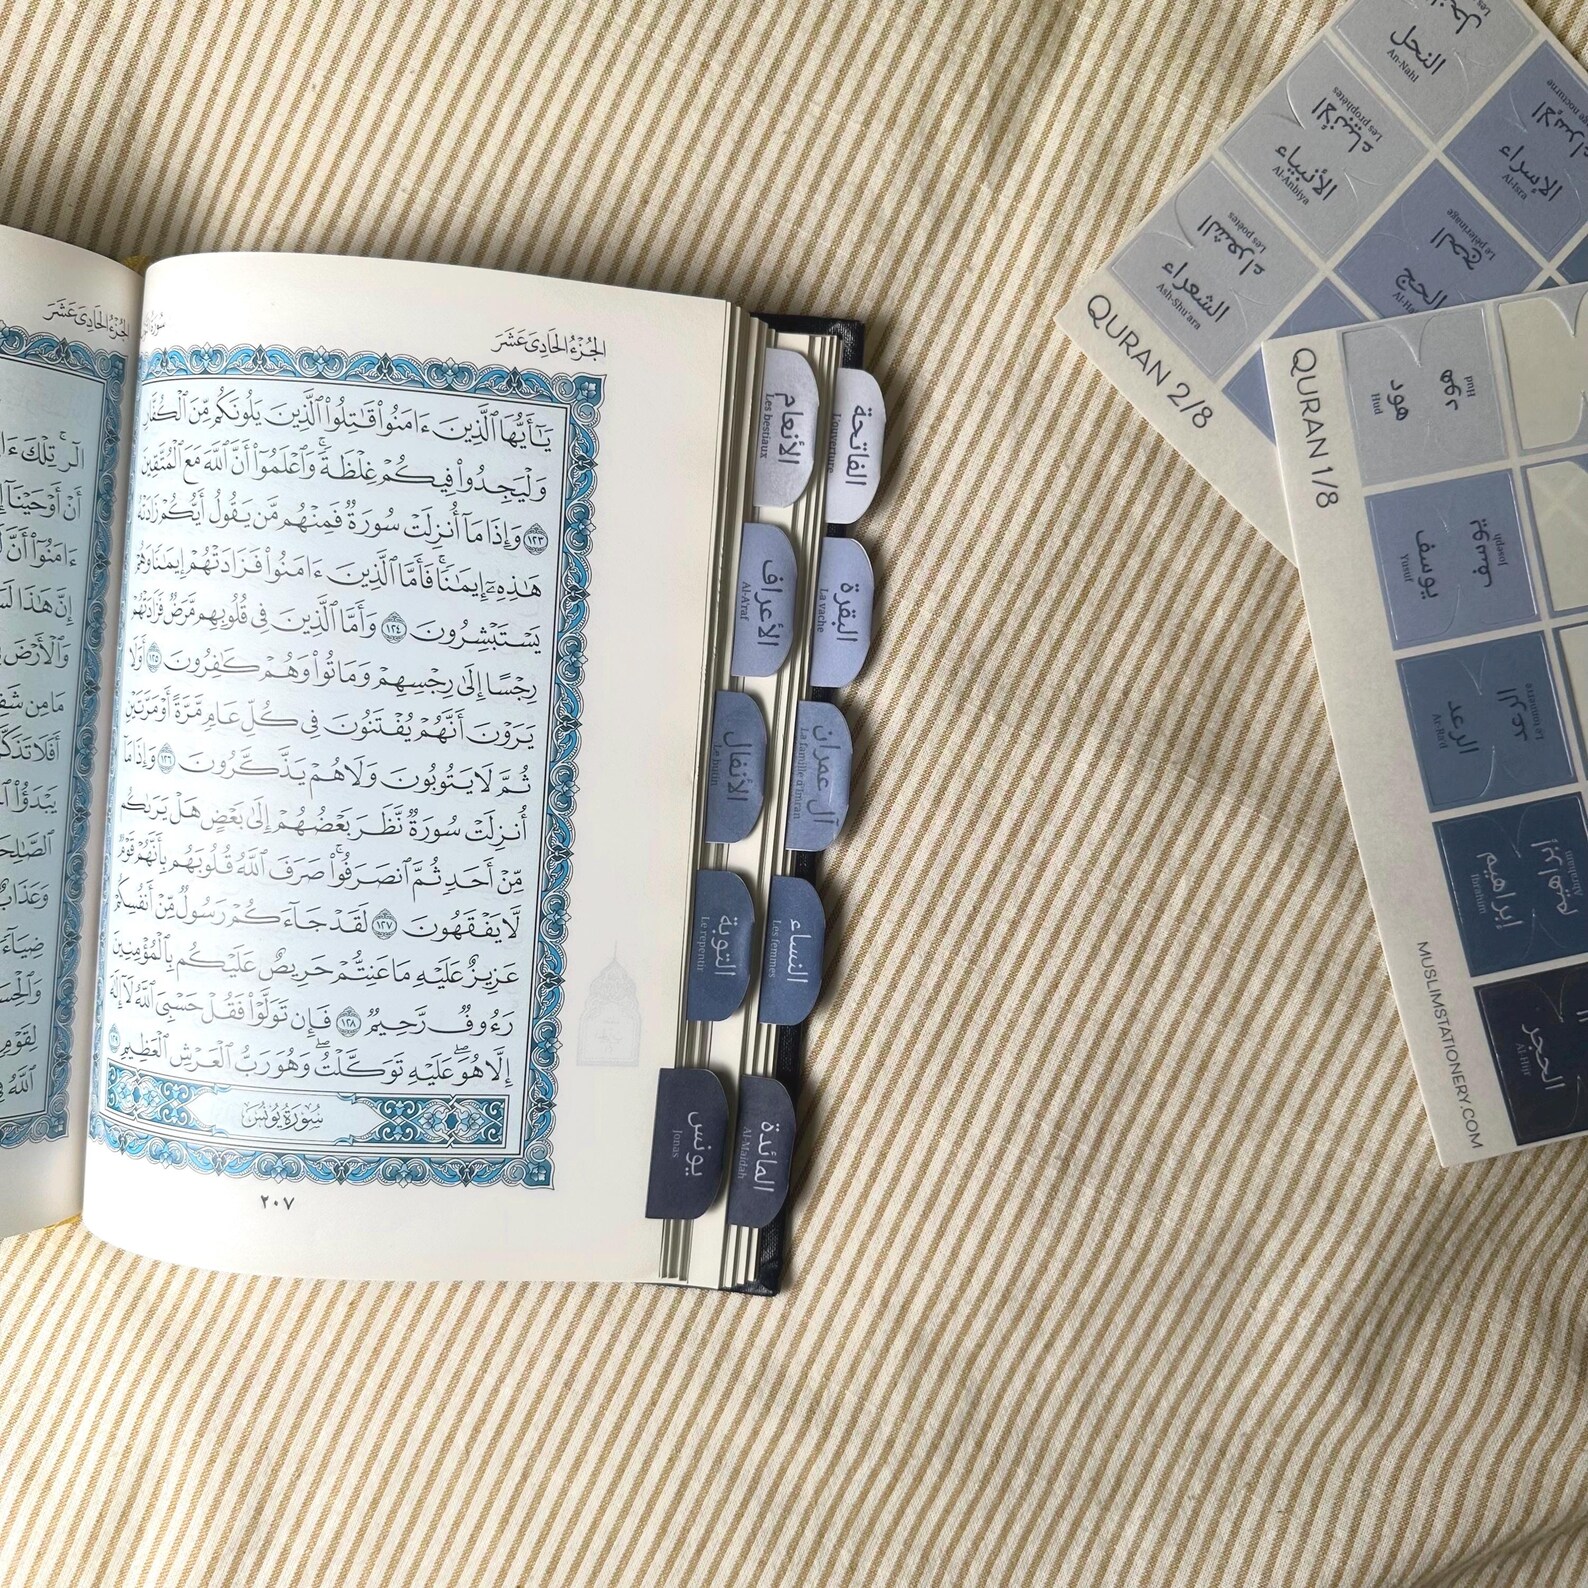 الجزء الحادي عشر
يَٰٓأَيُّهَا ٱلَّذِينَ ءَامَنُوا۟ قَٰتِلُوا۟ ٱلَّذِينَ يَلُونَكُم مِّنَ ٱلْكُفَّارِ
وَلْيَجِدُوا۟ فِيكُمْ غِلْظَةً ۚ وَٱعْلَمُوٓا۟ أَنَّ ٱللَّهَ مَعَ ٱلْمُتَّقِينَ
١٢٣ وَإِذَا مَآ أُنزِلَتْ سُورَةٌ فَمِنْهُم مَّن يَقُولُ أَيُّكُمْ زَادَتْهُ
هَٰذِهِۦٓ إِيمَٰنًا ۚ فَأَمَّا ٱلَّذِينَ ءَامَنُوا۟ فَزَادَتْهُمْ إِيمَٰنًا وَهُمْ
يَسْتَبْشِرُونَ ١٢٤ وَأَمَّا ٱلَّذِينَ فِى قُلُوبِهِم مَّرَضٌ فَزَادَتْهُمْ
رِجْسًا إِلَىٰ رِجْسِهِمْ وَمَاتُوا۟ وَهُمْ كَٰفِرُونَ ١٢٥ أَوَلَا
يَرَوْنَ أَنَّهُمْ يُفْتَنُونَ فِى كُلِّ عَامٍ مَّرَّةً أَوْ مَرَّتَيْنِ
ثُمَّ لَا يَتُوبُونَ وَلَا هُمْ يَذَّكَّرُونَ ١٢٦ وَإِذَا مَآ
أُنزِلَتْ سُورَةٌ نَّظَرَ بَعْضُهُمْ إِلَىٰ بَعْضٍ هَلْ يَرَىٰكُم
مِّنْ أَحَدٍ ثُمَّ ٱنصَرَفُوا۟ ۚ صَرَفَ ٱللَّهُ قُلُوبَهُم بِأَنَّهُمْ قَوْمٌ
لَّا يَفْقَهُونَ ١٢٧ لَقَدْ جَآءَكُمْ رَسُولٌ مِّنْ أَنفُسِكُمْ
عَزِيزٌ عَلَيْهِ مَا عَنِتُّمْ حَرِيصٌ عَلَيْكُم بِٱلْمُؤْمِنِينَ
رَءُوفٌ رَّحِيمٌ ١٢٨ فَإِن تَوَلَّوْا۟ فَقُلْ حَسْبِىَ ٱللَّهُ لَآ إِلَٰهَ
إِلَّا هُوَ ۖ عَلَيْهِ تَوَكَّلْتُ ۖ وَهُوَ رَبُّ ٱلْعَرْشِ ٱلْعَظِيمِ ١٢٩
سُورَةُ يُونُس
٢٠٧
الجزء الحادي عشر
الفاتحة
L'ouverture
البقرة
La vache
آل عمران
La famille d'Imran
النساء
Les femmes
المائدة
Al-Maidah
الأنعام
Les bestiaux
الأعراف
Al-A'raf
الأنفال
Le butin
التوبة
Le repentir
يونس
Jonas
QURAN 2/8
النحل
An-Nahl
الأنبياء
Les prophètes
الأنبياء
Al-Anbiya
الشعراء
Les poètes
الشعراء
Ash-Shu'ara
الإسراء
الإسراء
Al-Isra
الحج
Le pèlerinage
الحج
QURAN 1/8
هود
Hud
هود
Hud
يوسف
Yusuf
يوسف
Joseph
الرعد
Ar-Ra'd
الرعد
Le tonnerre
إبراهيم
Ibrahim
إبراهيم
Abraham
الحجر
Al-Hijr
MUSLIMSTATIONERY.COM